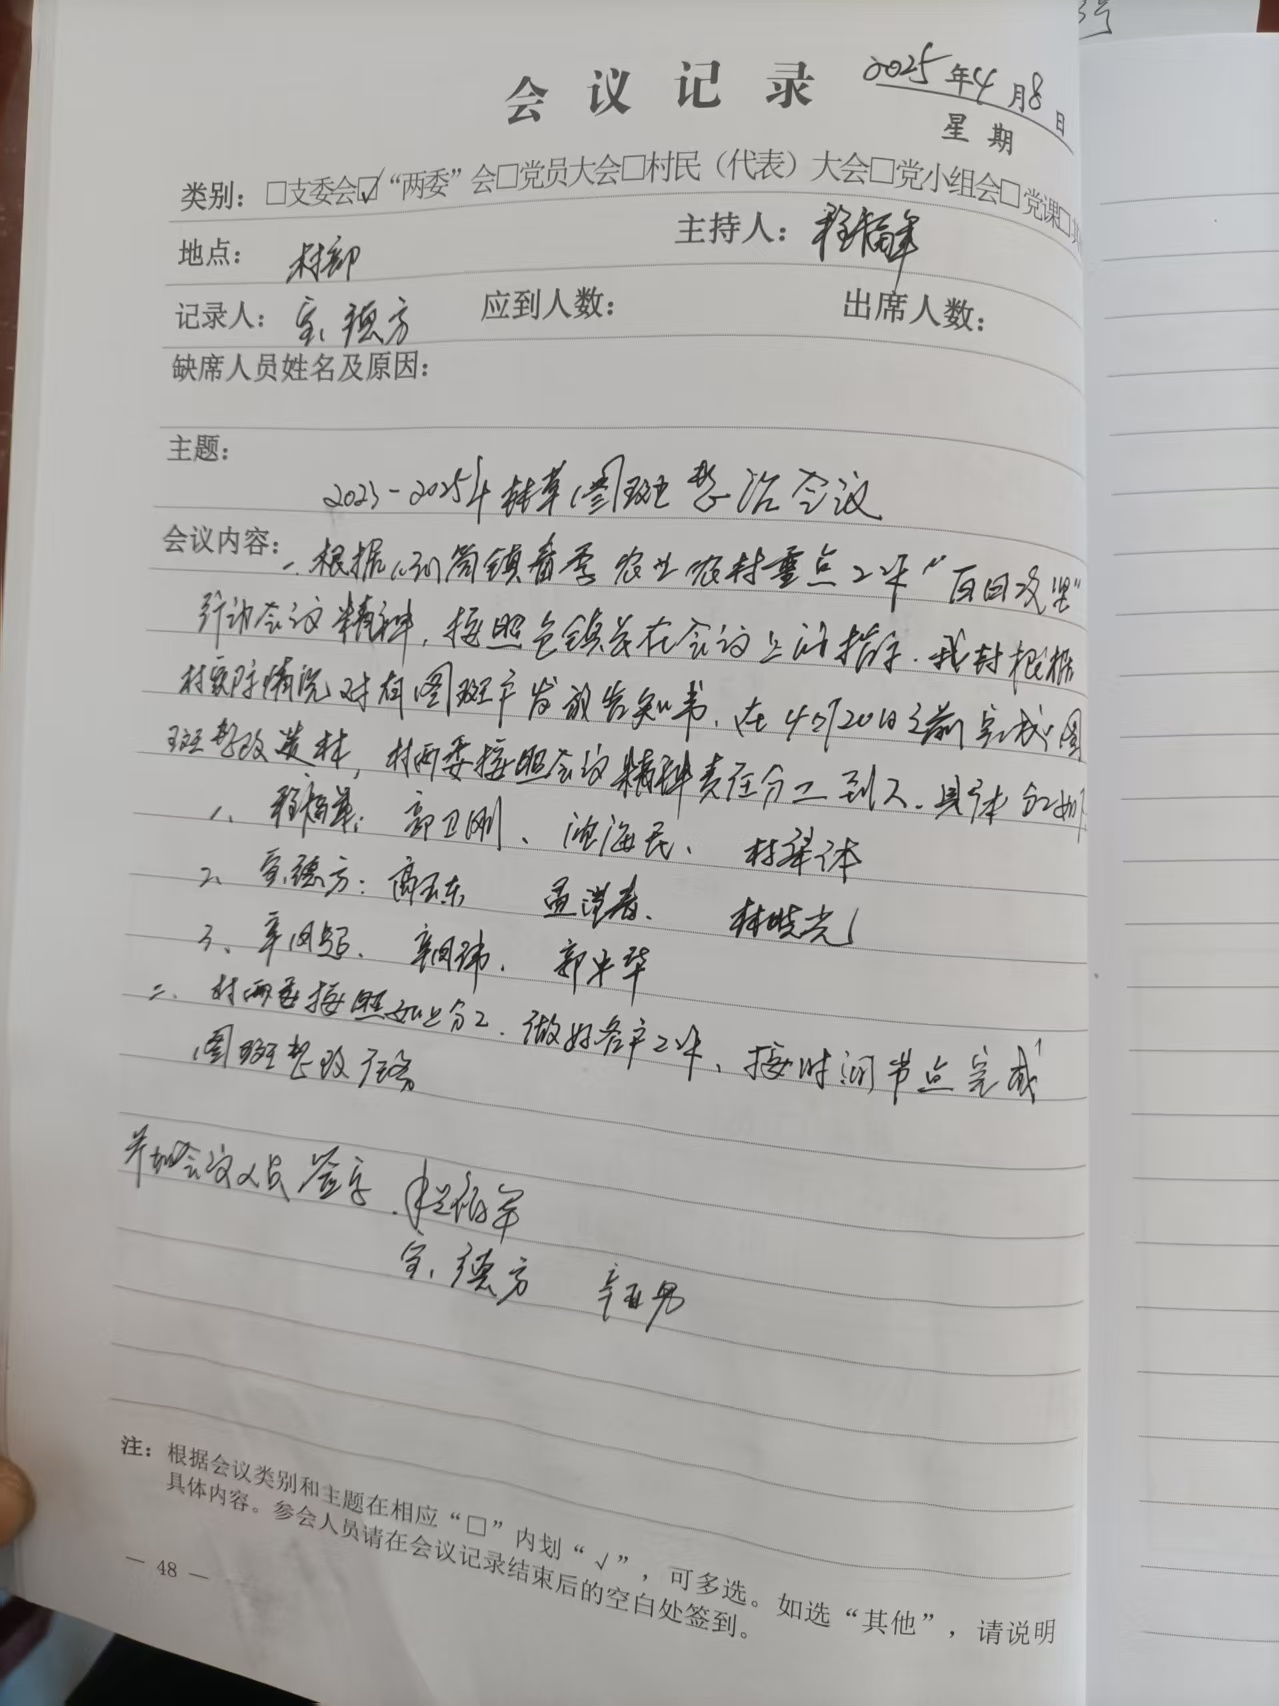 会议记录
2025年4月8日
星期
类别：□支委会☑“两委”会□党员大会□村民（代表）大会□党小组会□党课□其
地点：村部
主持人：程福军
记录人：宝德方 应到人数： 出席人数：
缺席人员姓名及原因：
主题：
2023-2025年林草图斑整治会议
会议内容：
一、根据 镇春季农业农村重点工作“百日攻坚”
行动会议精神，按照包镇 在会议上的指示，我村根据
村实际情况对有图斑户发放告知书，在4月20日之前完成图
斑整改造林，村两委按照会议精神责任分工到人，具体分工如下
1、程福军：郭卫刚、 海民、村
2、宝德方：高玉东 孟 春、林晓光
3、辛 、 、郭 华
二、村两委按照如上分工，做好各户工作，按时间节点完成
图斑整改任务
参加会议人员签字：程福军
宝德方 辛亚男
注：根据会议类别和主题在相应“□”内划“√”，可多选。如选“其他”，请说明
具体内容。参会人员请在会议记录结束后的空白处签到。
— 48 —